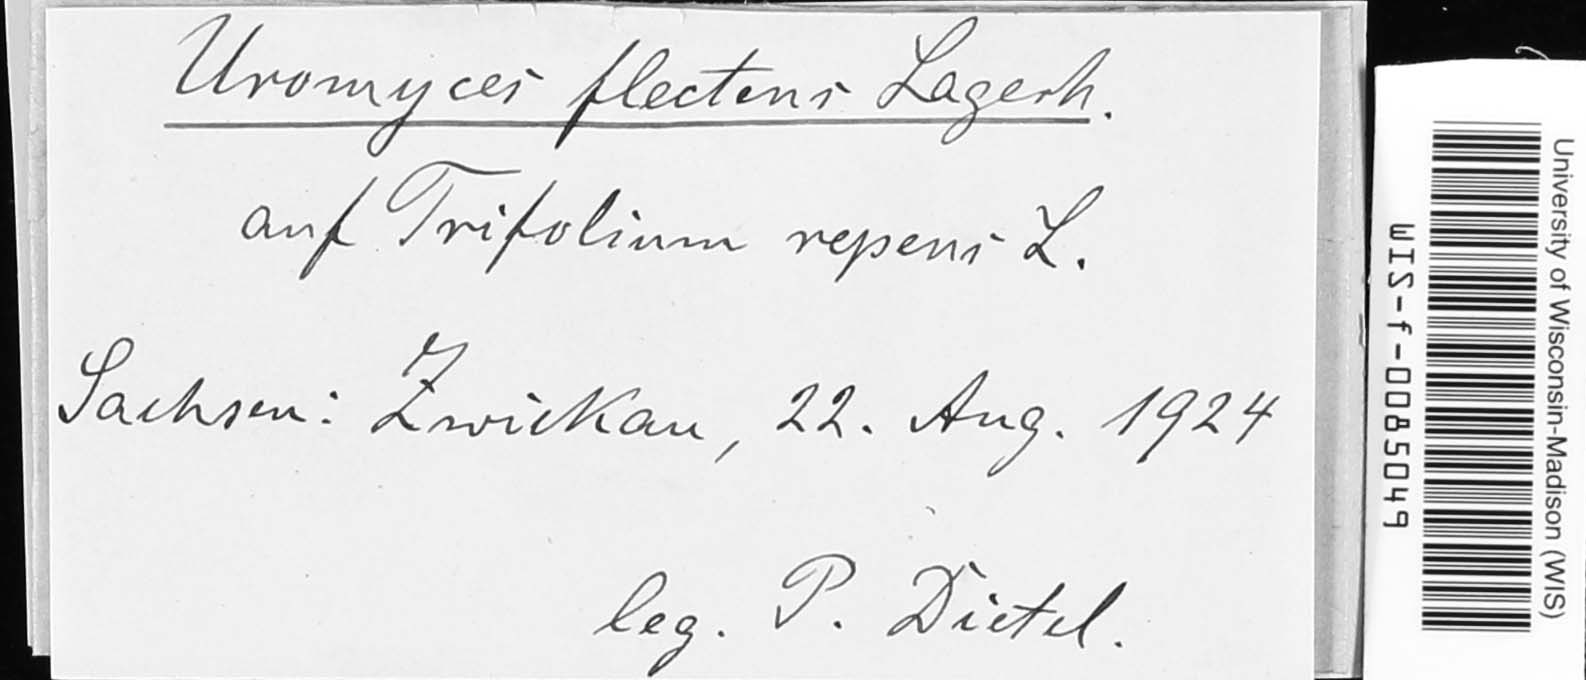 Uromyces flectens Lagerh.
auf Trifolium repens L.
Sachsen: Zwickau, 22. Aug. 1924
leg. P. Dietel.
University of Wisconsin-Madison (WIS)
WIS-f-0085049